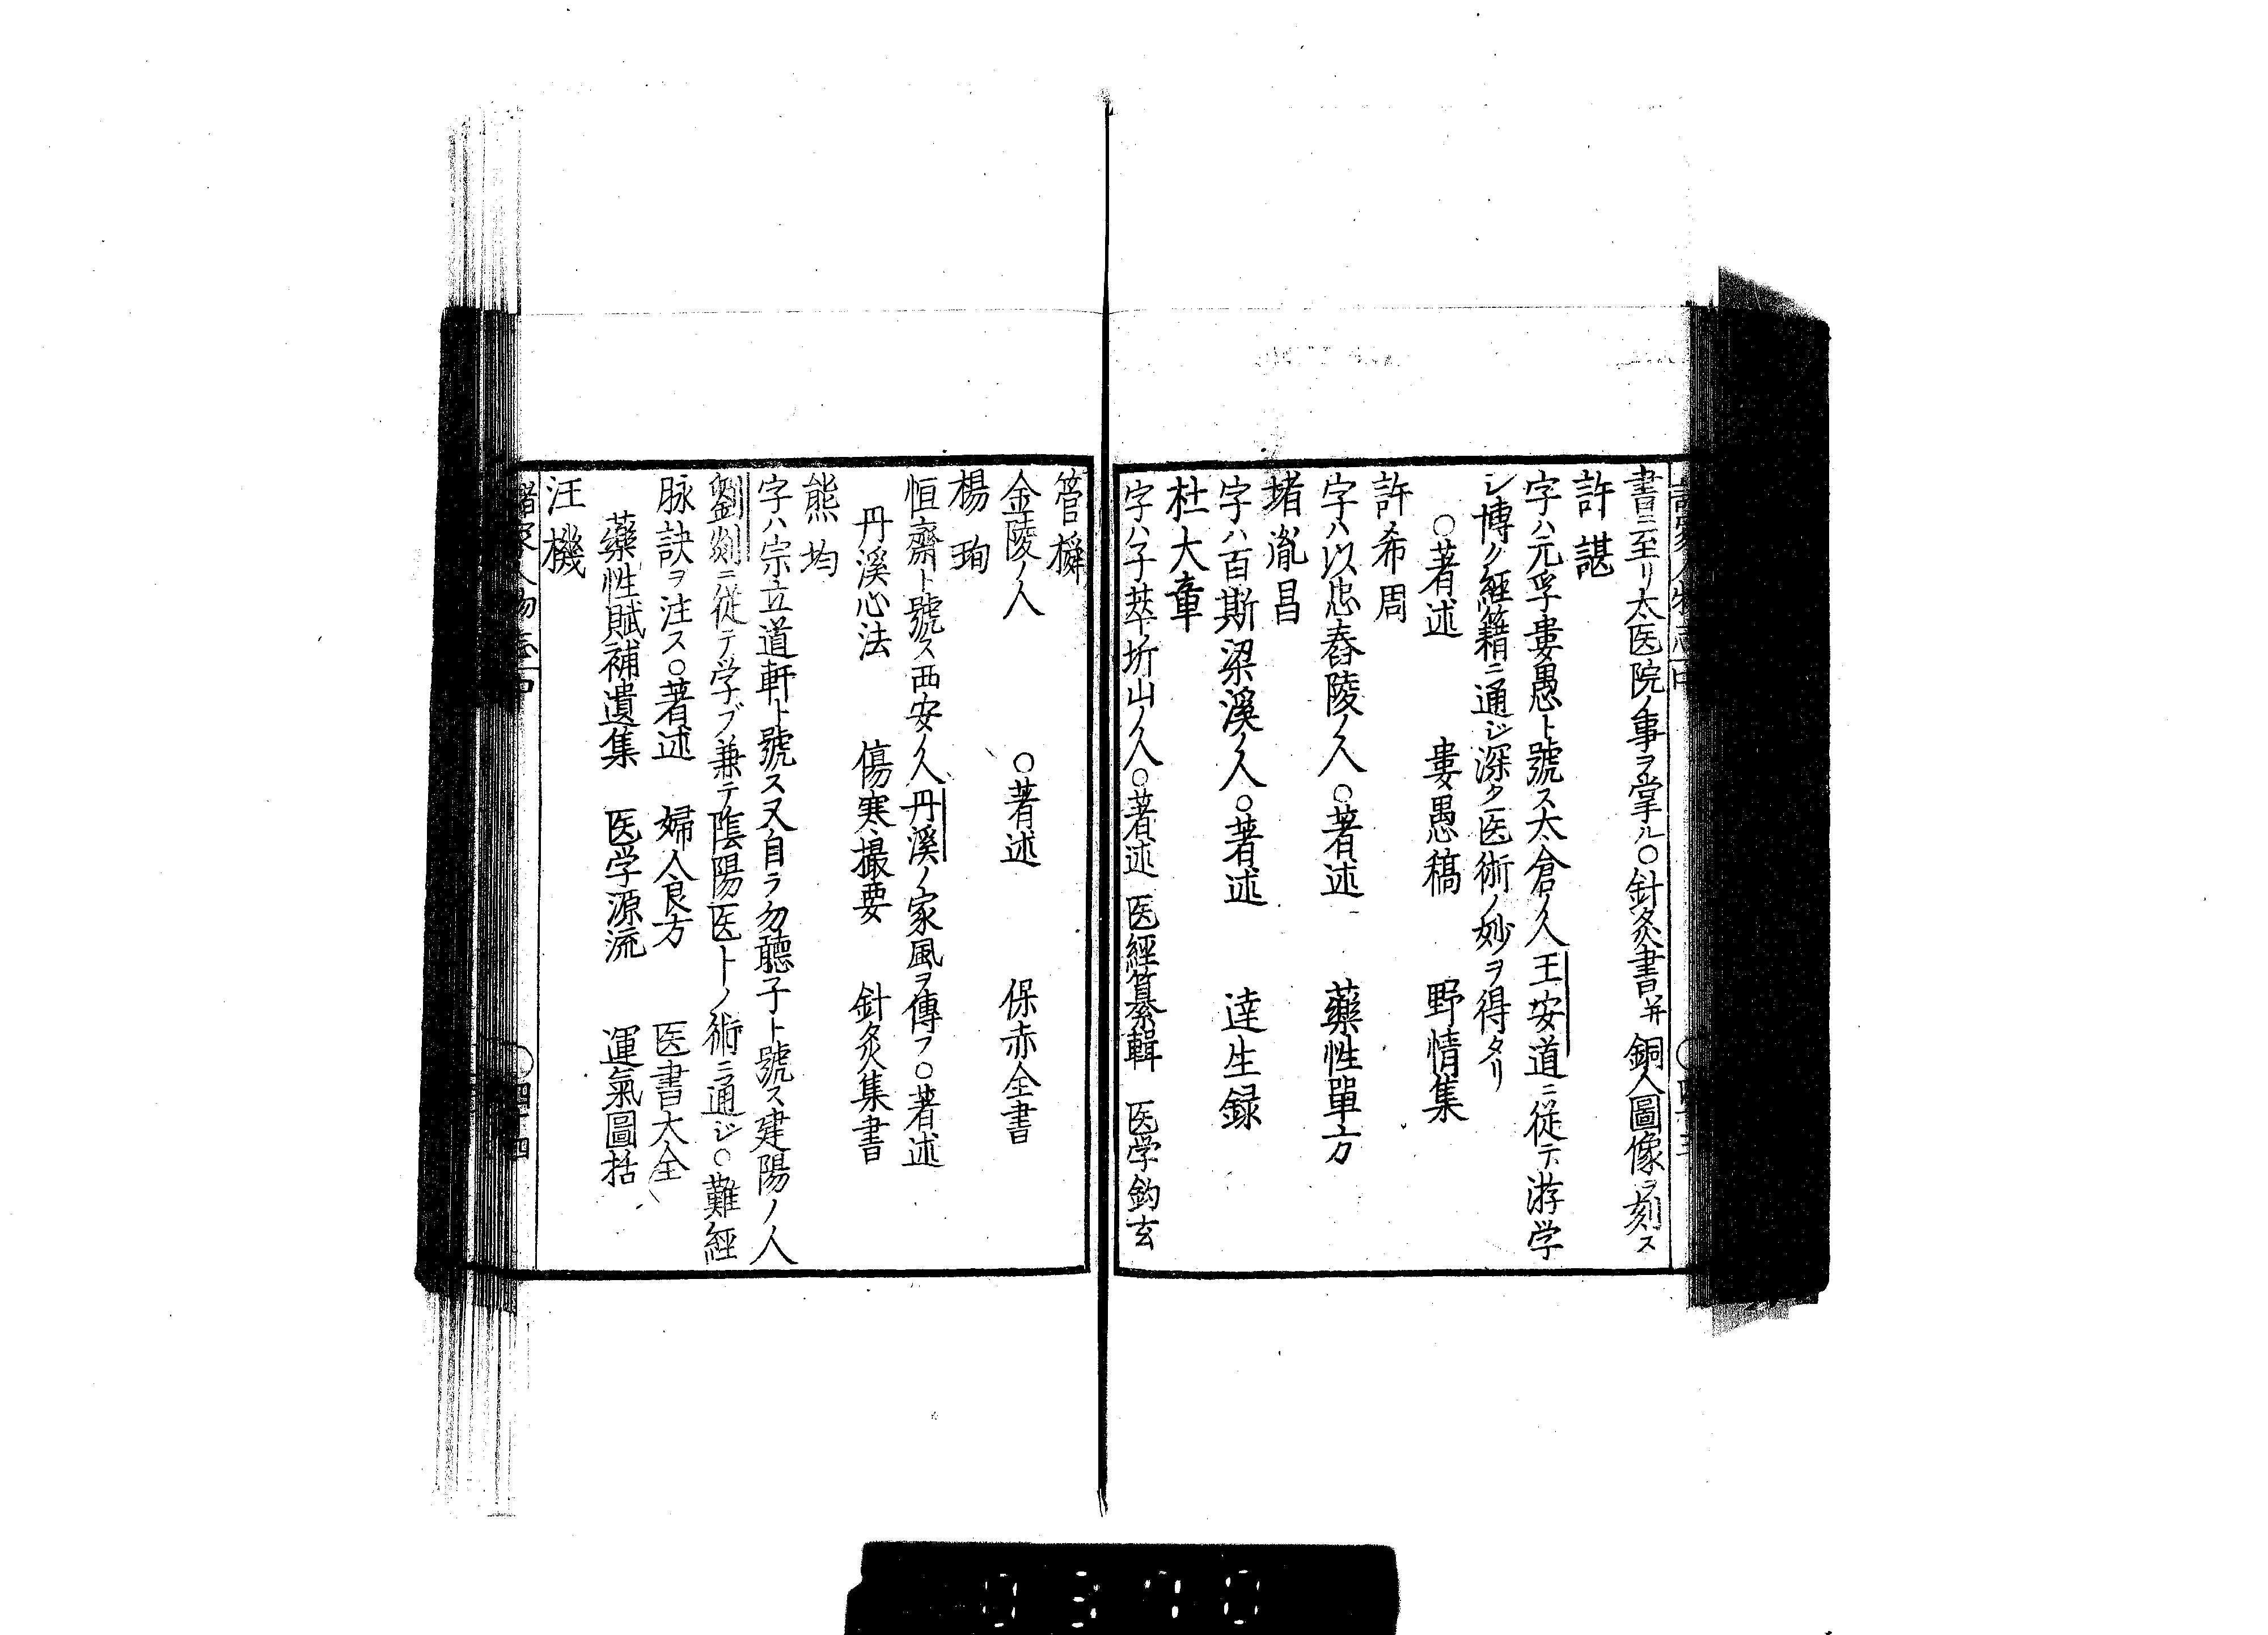 書ニ至リ太医院ノ事ヲ掌ル○針灸書并銅人圖像ヲ刻ス
許諶
字ハ元孚婁愚ト號ス太倉ノ人王安道ニ從テ游学
シ博ク経籍ニ通ジ深ク医術ノ妙ヲ得タリ
○著述 婁愚稿 野情集
許希周
字ハ以忠舂陵ノ人○著述 藥性單方
堵胤昌
字ハ百斯梁溪ノ人○著述 達生録
杜大章
字ハ子華圻山ノ人○著述 医經纂輯 医学鈎玄
管橓
金陵ノ人 ○著述 保赤全書
楊珣
恒齋ト號ス西安ノ人丹溪ノ家風ヲ傳フ○著述
丹溪心法 傷寒撮要 針灸集書
熊均
字ハ宗立道軒ト號ス又自ラ勿聽子ト號ス建陽ノ人
劉剡ニ從テ学ブ兼テ陰陽医卜ノ術ニ通ジ○難経
脉訣ヲ注ス○著述 婦人良方 医書大全
藥性賦補遺集 医学源流 運氣圖括
汪機
諸家人物志 中 ○四十四
0370